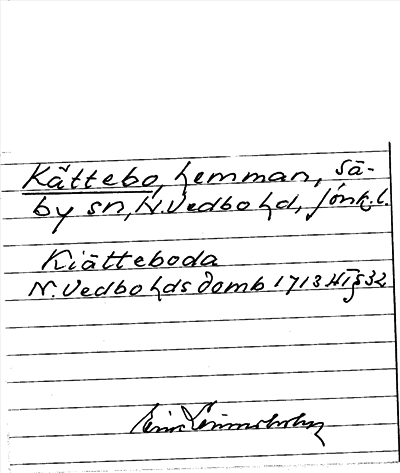 Kättebo, hemman, Sä-
by sn, N. Vedbo hd, Jönk. l.
Kiätteboda
N. Vedbo hds domb 1713 32